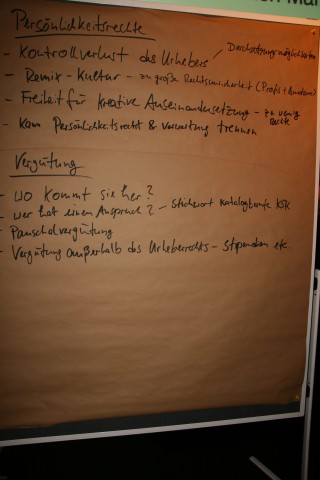 Persönlichkeitsrechte
- Kontrollverlust des Urhebers / Durchsetzungsmöglichkeiten
- Remix-Kultur - zu große Rechtsunsicherheit (Profis + Amateure)
- Freiheit für kreative Auseinandersetzung - zu wenig Rechte
- Kann Persönlichkeitsrecht & Verwertung trennen
Vergütung
- wo kommt sie her?
- wer hat einen Anspruch? - Stichwort Katalogberufe KSK
- Pauschalvergütung
- Vergütung außerhalb des Urheberrechts - Stipendien etc.